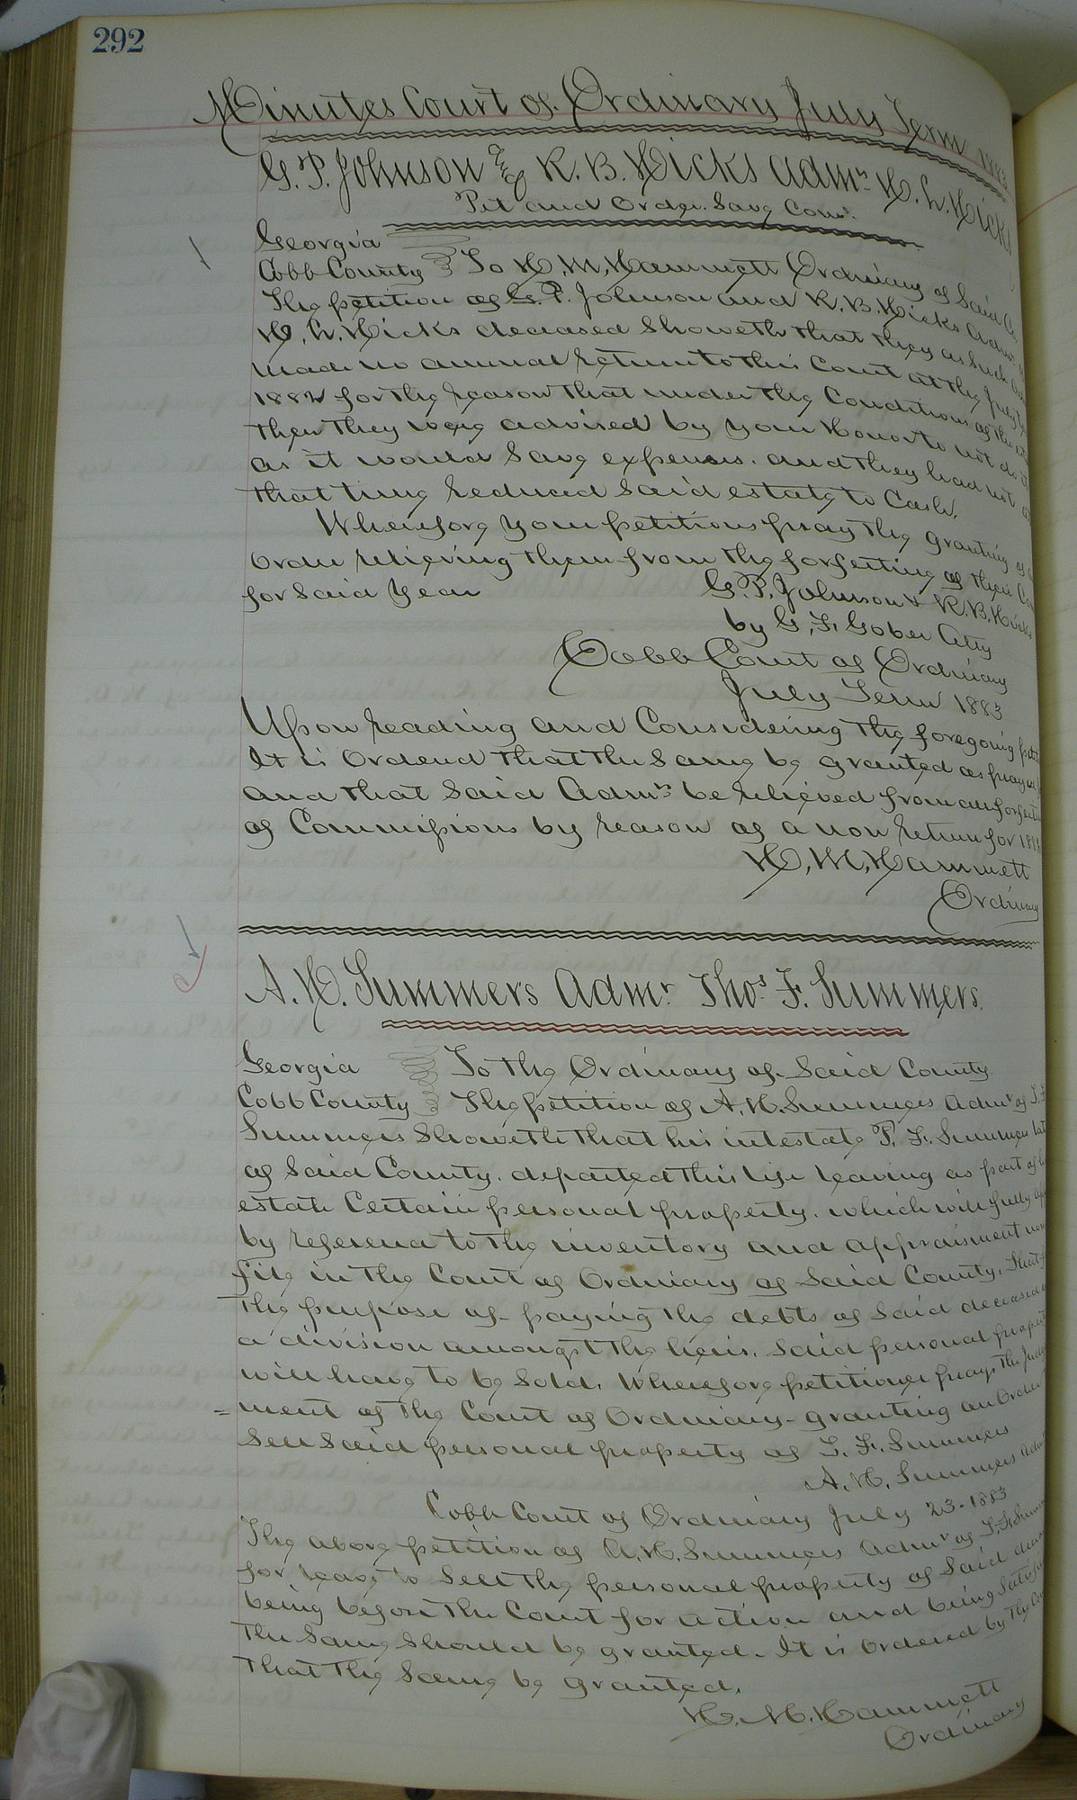 292
Minutes Court of Ordinary July Term 1883
G. P. Johnson & R. B. Hicks Admrs H. W. Hicks
Pet and Order Savg Coms.
Georgia
Cobb County To H. M. Hammett Ordinary of Said Co.
The petition of G. P. Johnson and R. B. Hicks Admrs
H. W. Hicks deceased Showeth that they as Such
made no annual return to this Court at the July
1882 for the reason that under the Conditions of the
then they were advised by your Honor to not do it
as it would Save expenses. and they had not
that time reduced Said estate to Cash.
Wherefore your petitions pray the granting of
Order relieving them from the forfeiting of their
for Said Year G. P. Johnson & R. B. Hicks
by G. F. Gober Atty
Cobb Court of Ordinary
July Term 1883
Upon reading and Considering the foregoing
It is Ordered that the Same be granted as prayed
and that Said Admrs be relieved from
of Commissions by reason of a non return for
H. M. Hammett
Ordinary
A. H. Summers Admr. Thos. F. Summers.
Georgia To the Ordinary of Said County
Cobb County The petition of A. H. Summers Admr of T. F.
Summers Showeth that his intestate T. F. Summers late
of Said County. departed this life leaving as part of
estate Certain personal property. which will fully
by reference to the inventory and appraisment
file in the Court of Ordinary of Said County. That
the purpose of paying the debts of Said deceased
a division amongst the heirs. Said personal property
will have to be Sold. Wherefore petitioner prays the Judg
= ment of the Court of Ordinary - granting an Order
Sell Said personal property of T. F. Summers
A. H. Summers Admr
Cobb Court of Ordinary July 23 - 1883
The above petition of A. H. Summers Admr of T. F. Summers
for leave to Sell the personal property of Said
being before the Court for action and being
the Same Should be granted. It is Ordered by the
that the Same be granted.
H. M. Hammett
Ordinary